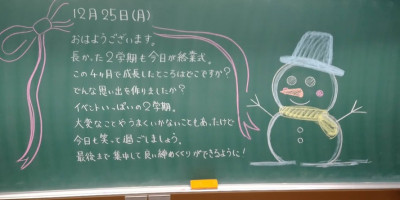 12月25日(月)
おはようございます。
長かった2学期も今日が終業式。
この4ヶ月で成長したところはどこですか?
どんな思い出を作りましたか?
イベントいっぱいの2学期。
大変なことやうまくいかないこともあったけど
今日も笑って過ごしましょう。
最後まで集中して良い締めくくりができるように!